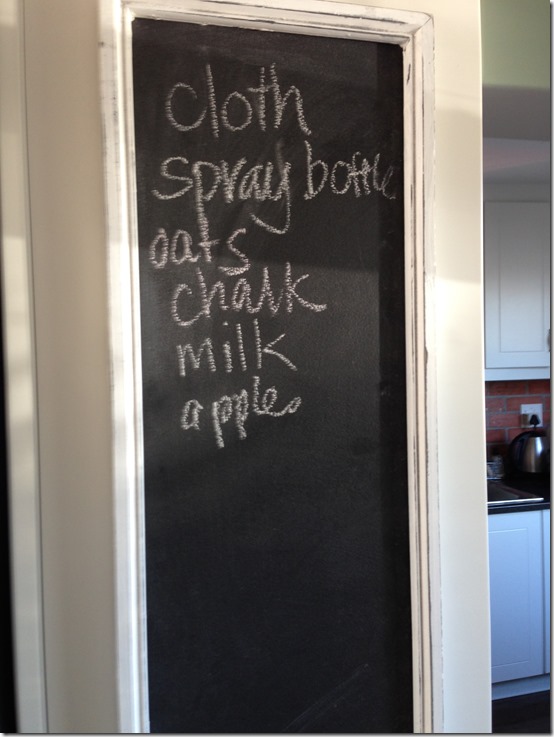 cloth
spray bottle
oats
chalk
milk
apples